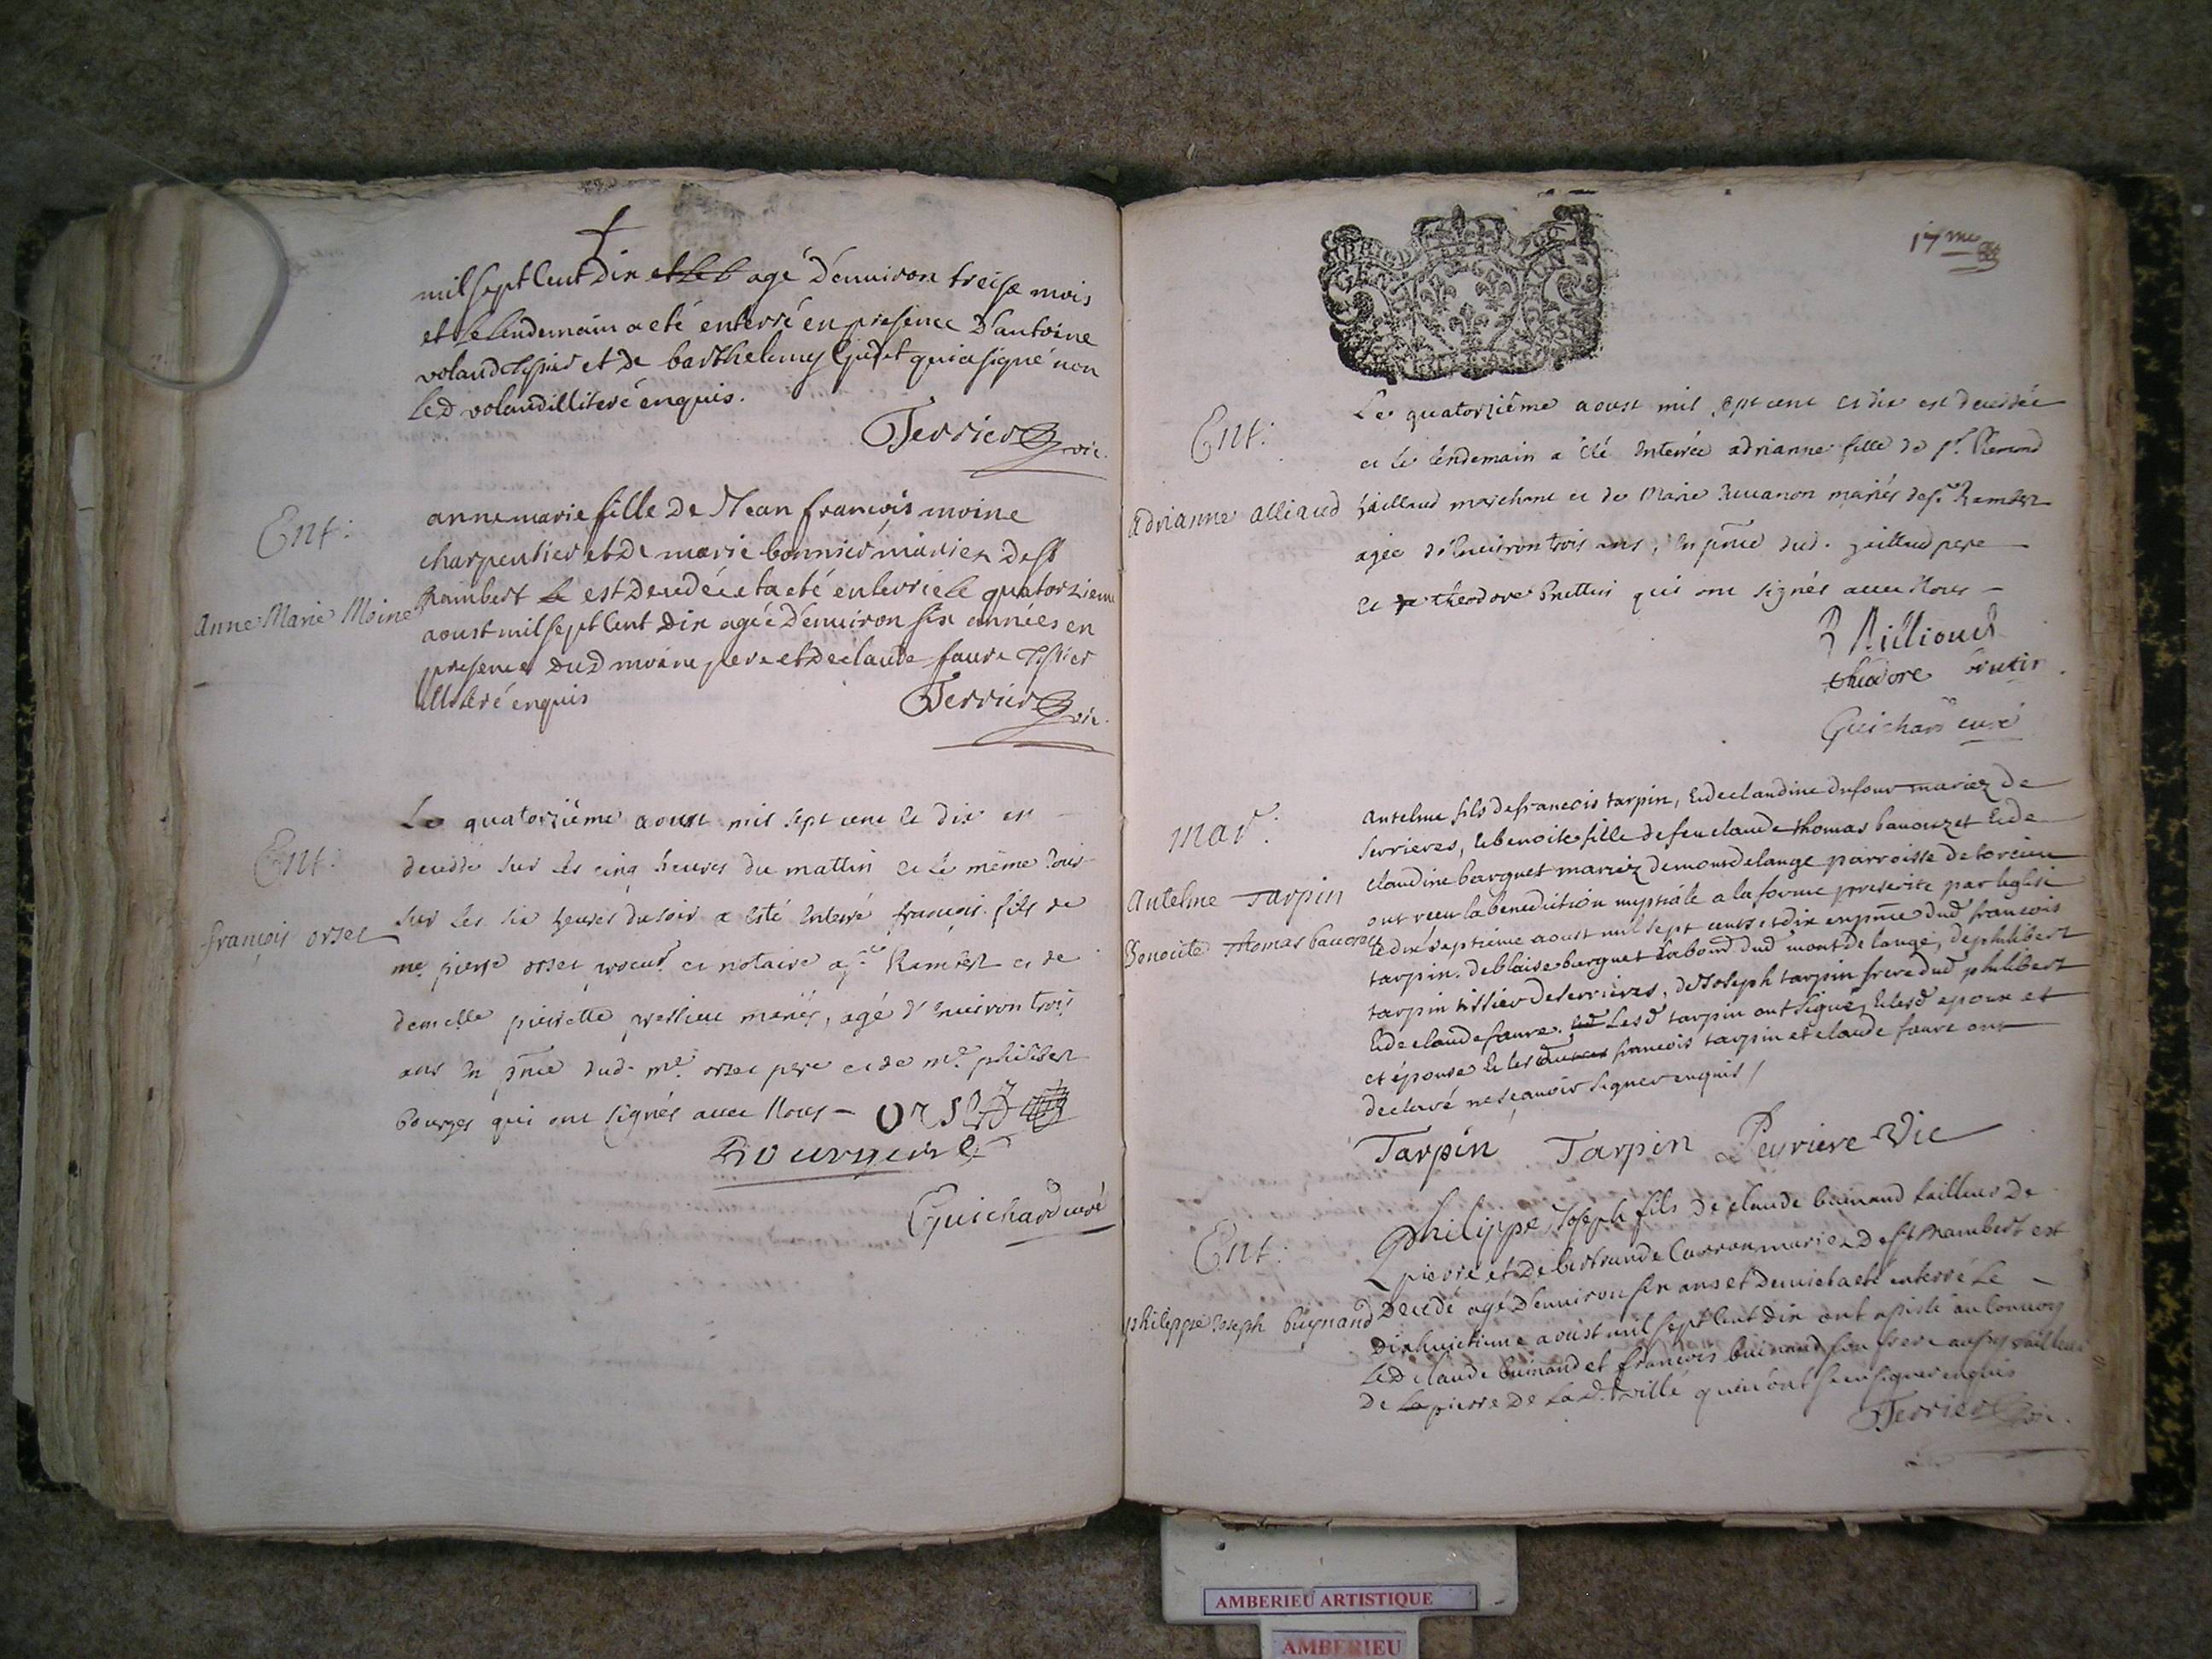 mil sept Cent Dix et le l agé D'enuiron treise mois
et le lendemain a eté enterré en presence D'antoine
voland Tissier et de barthelemy qui a signé non
led voland illiteré enquis.
Terrier vic.
Ent:
Anne Marie Moine
anne marie fille de Jean françois moine
charpentier et de marie bonnier mariez de st
Rambert le est decedée et a eté enterrée le quatorzieme
aoust mil sept Cent Dix agée D'enuiron six années en
presence dud moine pere et de claude faure Tissier
illiteré enquis
Terrier vic.
Ent:
françois orset
Le quatorziéme aoust mil sept cent et dix est
decedé sur les cinq heures du mattin et le même iour
sur les six heures du soir a esté enterré françois fils de
me pierre orset procur et notaire a st Rambert et de
demelle pierrette mariés, agé d'enuiron trois
ans en pnce dud. me. orset pere et de me. philibert
bourges qui ont signés auec Nous – Orset
Guichard curé
17me
Ent:
Adrianne alliaud
Le quatorziéme aoust mil sept cent et dix est decedée
et le lendemain a été enterrée adrianne fille de sr.
marchant et de Marie mariés de st Rambert
agée d'enuiron trois ans, en pnce dud. pere
et theodore qui ont signés auec Nous –
theodore
Guichard curé
mar:
Antelme Tarpin
Benoite Thomas
Antelme fils de francois tarpin, et de claudine dufour mariez de
serrieres, et benoite fille de feu claude thomas et de
claudine barguet mariez de mont de lange parroisse de torcieu
ont reçu la benediction nuptiale a la forme prescrite par leglise
le dix septiéme aoust mil sept cents et dix en pnce dud francois
tarpin. de blaise burguet dud mont de lange, de philibert
tarpin tissier de serrieres, de Joseph tarpin frere dud philibert
et de claude faure. lesd tarpin ont signé, et lesd epoux et
et épouse et les francois tarpin et claude faure ont
declaré ne sçauoir signer enquis /
Tarpin Tarpin Peyriere Vic
Ent:
philippe Joseph buynand
Philippe Joseph fils de claude buinand tailleur de
pierre et de bertrande Carron mariez de st Rambert est
decedé agé D'enuiron six ans et demi et a eté enterré le
Dixhuictieme aoust mil sept Cent Dix ont assisté au Conuoy
led claude buinand et francois buinand son frere aussy tailleur
de la pierre de lad. ville qui n'ont sceu signer enquis
Terrier vic.
AMBERIEU ARTISTIQUE
AMBERIEU